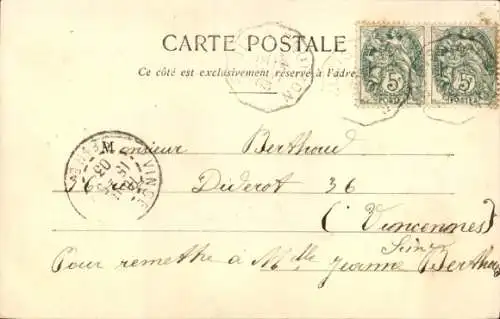 CARTE POSTALE
Ce côté est exclusivement réservé à l'adre
5c 5c
POSTES POSTES
Monsieur Berthoud
Rue Diderot 36
(Vincennes)
Seine
Pour remethe à Mlle Jeanne Berthoud